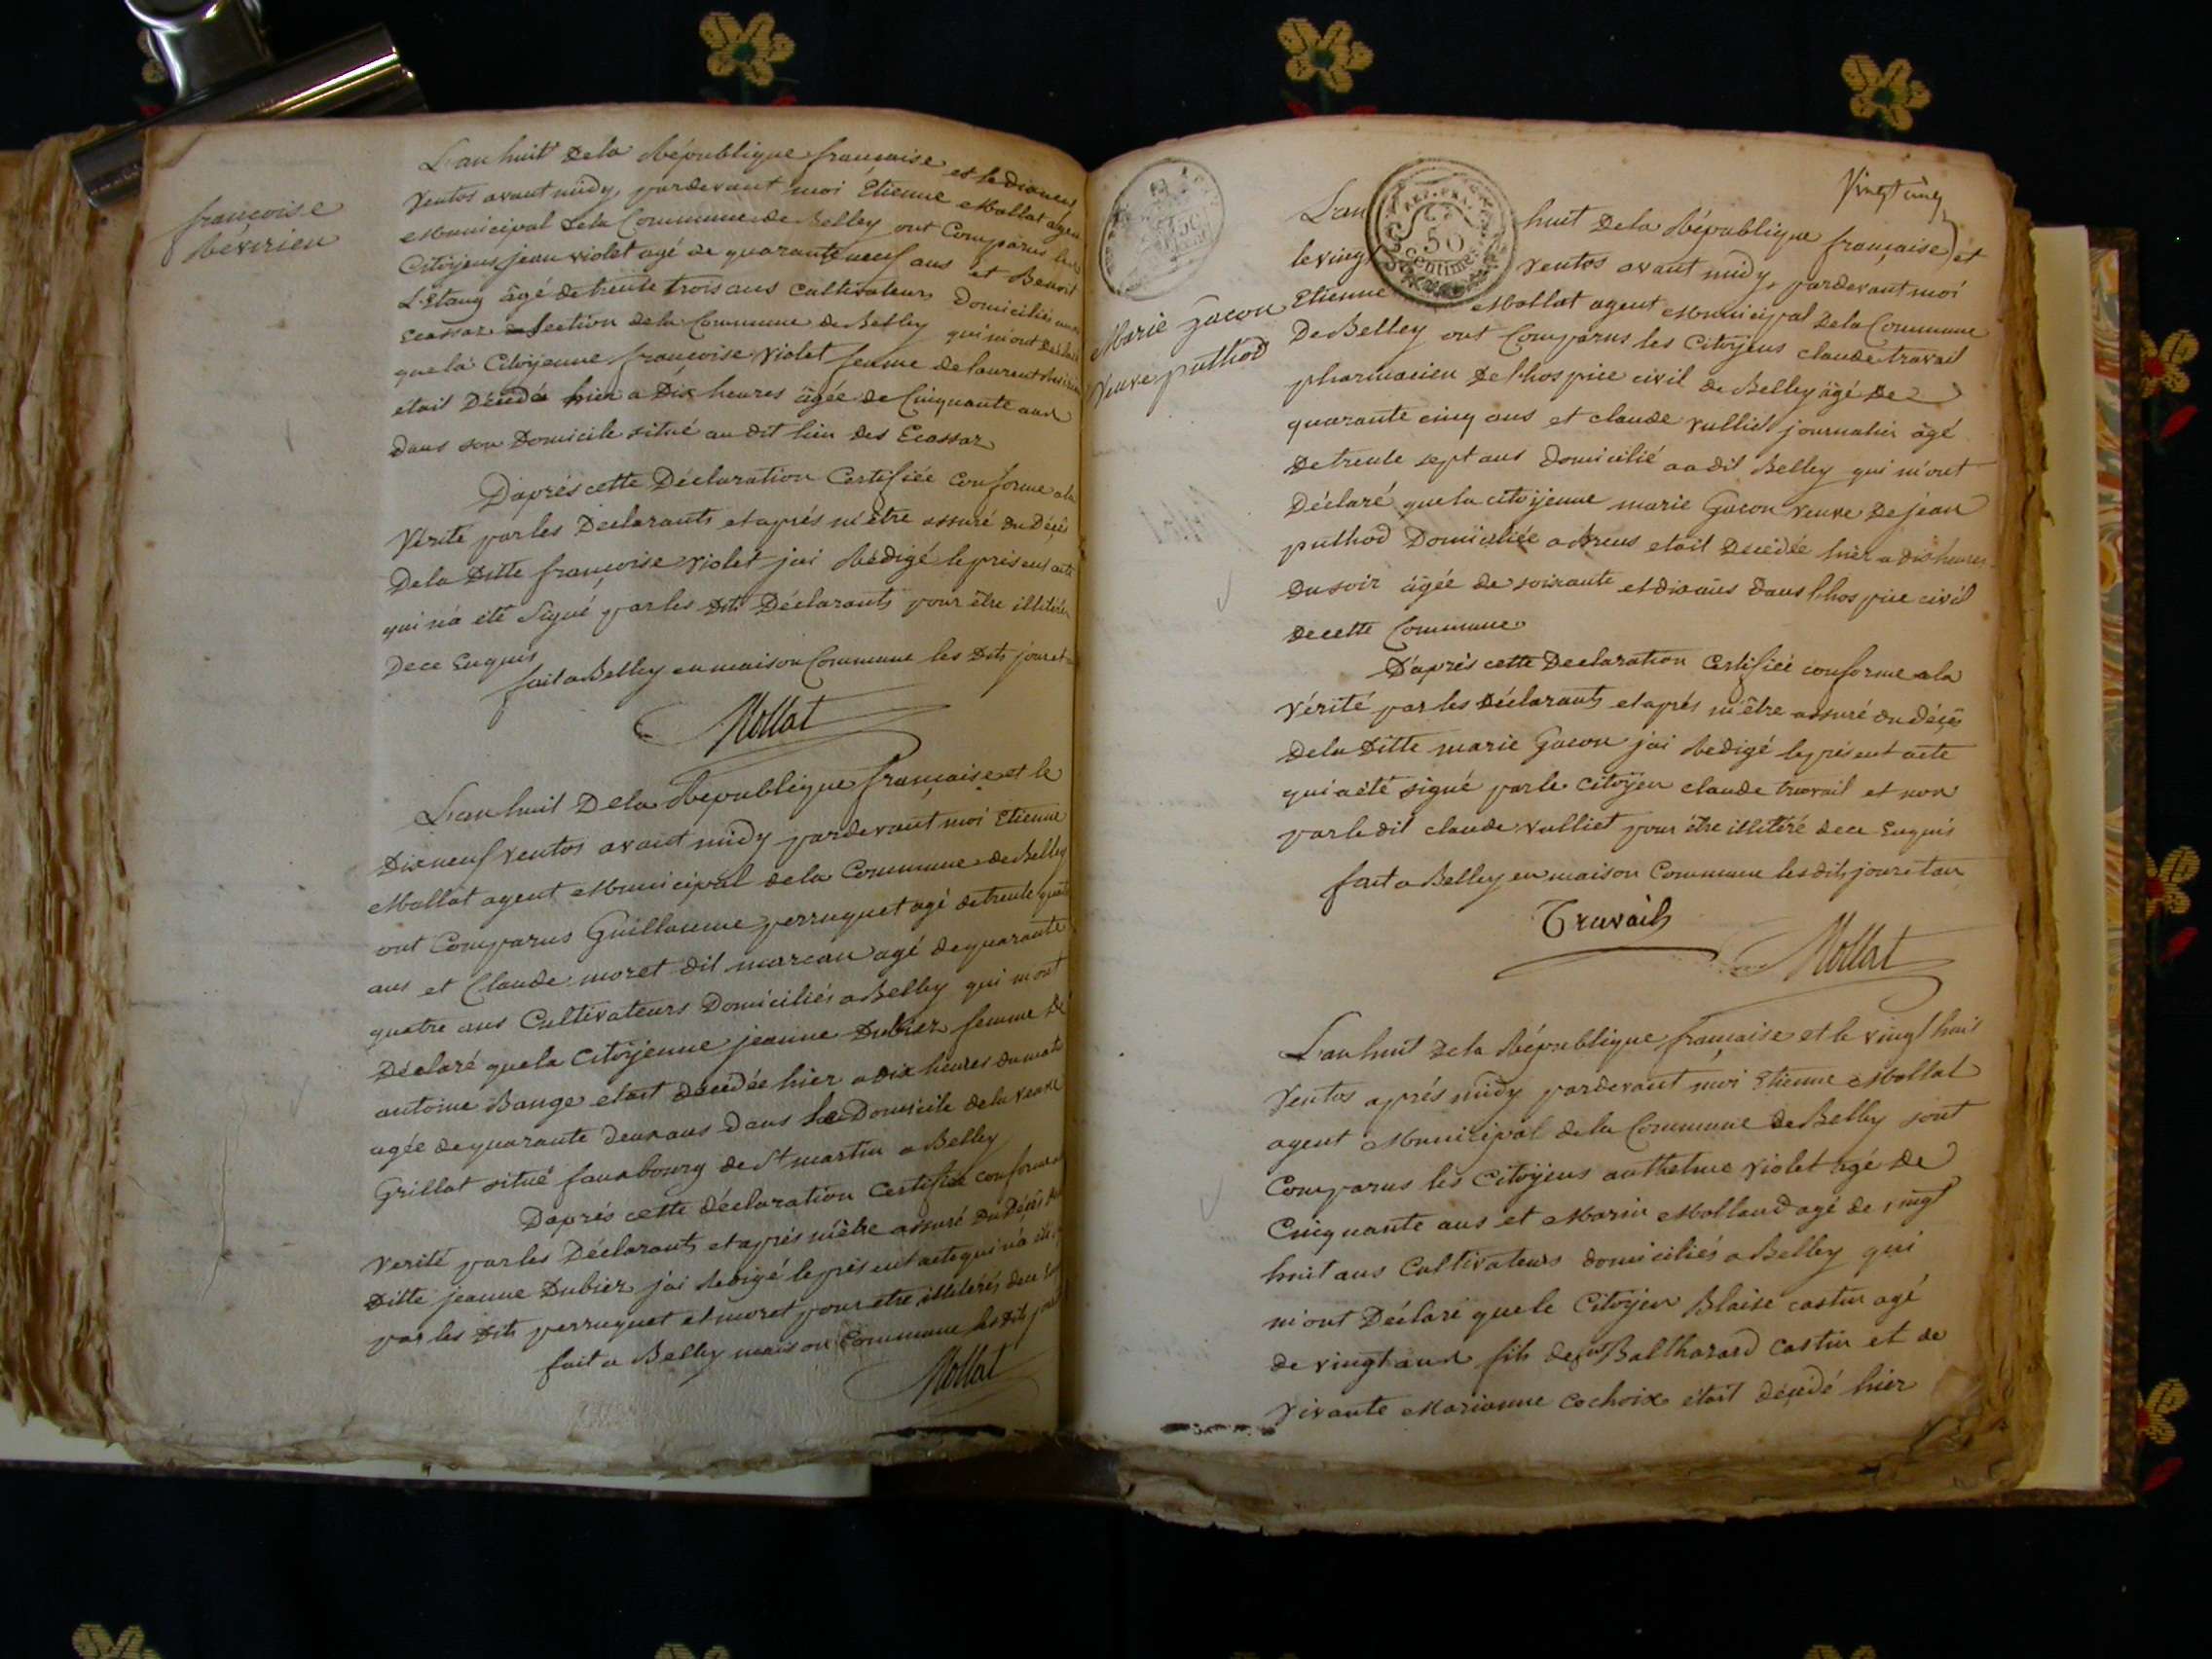 françoise
Révirieu
L'an huit de la République française et le dixneuf
Ventos avant midy, pardevant moi Étienne Mollat agent
Municipal de la Commune de Belley ont Comparus les
Citoyens jean violet agé de quarante neuf ans et Benoit
L'Etang âgé de trente trois ans cultivateurs Domiciliés
Ecassaz Section de la Commune de Belley qui m'ont déclaré
que la Citoyenne françoise violet femme de laurent
etait Décédé hier a Dix heures âgée de Cinquante ans
dans son Domicile situé au dit lieu des Ecassaz
D'aprés cette Déclaration Certifiée Conforme a la
Vérité par les Déclarants et aprés m'être assuré du Décès
De la Ditte françoise violet jai Rédigé le présent acte
qui n'a été Signé par les dits Déclarants pour être illitérés
De ce Enquis
fait a Belley en maison Commune les Dits jour et
Mollat
L'an huit De la République française et le
Dix neuf ventos avant midy pardevant moi Etienne
Mollat agent Municipal de la Commune de Belley
ont Comparus Guillaume perruquet agé de trente quatre
ans et Claude moret dit marcau agé de quarante
quatre ans Cultivateurs Domiciliés a Belley qui m'ont
Déclaré que la Citoyenne jeanne Dubier femme de
antoine Bange etait décédée hier a dix heures du matin
agée de quarante deux ans Dans le Domicile de la veuve
Grillat situé fauxbourg de St martin a Belley
D'aprés cette déclaration Certifiée conforme a
Verité par les Déclarants et aprés m'être assuré Du Décès de
Ditte jeanne Dubier j'ai Redigé le présent acte qui n'a été
par les Dits perruquet et moret pour etre illitérés de ce
fait a Belley maison Commune les Dits jour
Mollat
Vingt cinq
50
centimes
Marie Gacon
Veuve puthod
L'an huit De la République française et
le vingt Ventos avant midy, pardevant moi
Etienne Mollat agent Municipal De la Commune
De Belley ont Comparus les Citoyens claude travail
pharmacien De l'hospice civil de Belley âgé de
quarante cinq ans et claude vulliet journalier âgé
De trente sept ans domicilié audit Belley qui m'ont
Déclaré que la citoyenne marie Gacon veuve De jean
puthod Domiciliée a etait Décédée hier a dix heures
Du soir âgée de soixante et dix ans dans l'hospice civil
de cette Commune
D'aprés cette Declaration Certifiée conforme a la
Vérité par les Déclarants et aprés m'être assuré du décès
De la Ditte marie Gacon jai Redigé le présent acte
qui a été signé par le Citoyen claude travail et non
par le dit claude vulliet pour être illitéré de ce Enquis
fait a Belley en maison Commune les dits jour et an
Travail
Mollat
L'an huit De la République française et le vingt huit
Ventos aprés midy pardevant moi Etienne Mollat
agent Municipal de la Commune de Belley sont
Comparus les Citoyens anthelme violet agé de
Cinquante ans et Marin Mollaud agé de vingt
huit ans Cultivateurs domiciliés a Belley qui
m'ont Déclaré que le Citoyen Blaise castin agé
de vingt ans fils de fut Balthazard castin et de
Vivante Marianne Cochoix était décédé hier